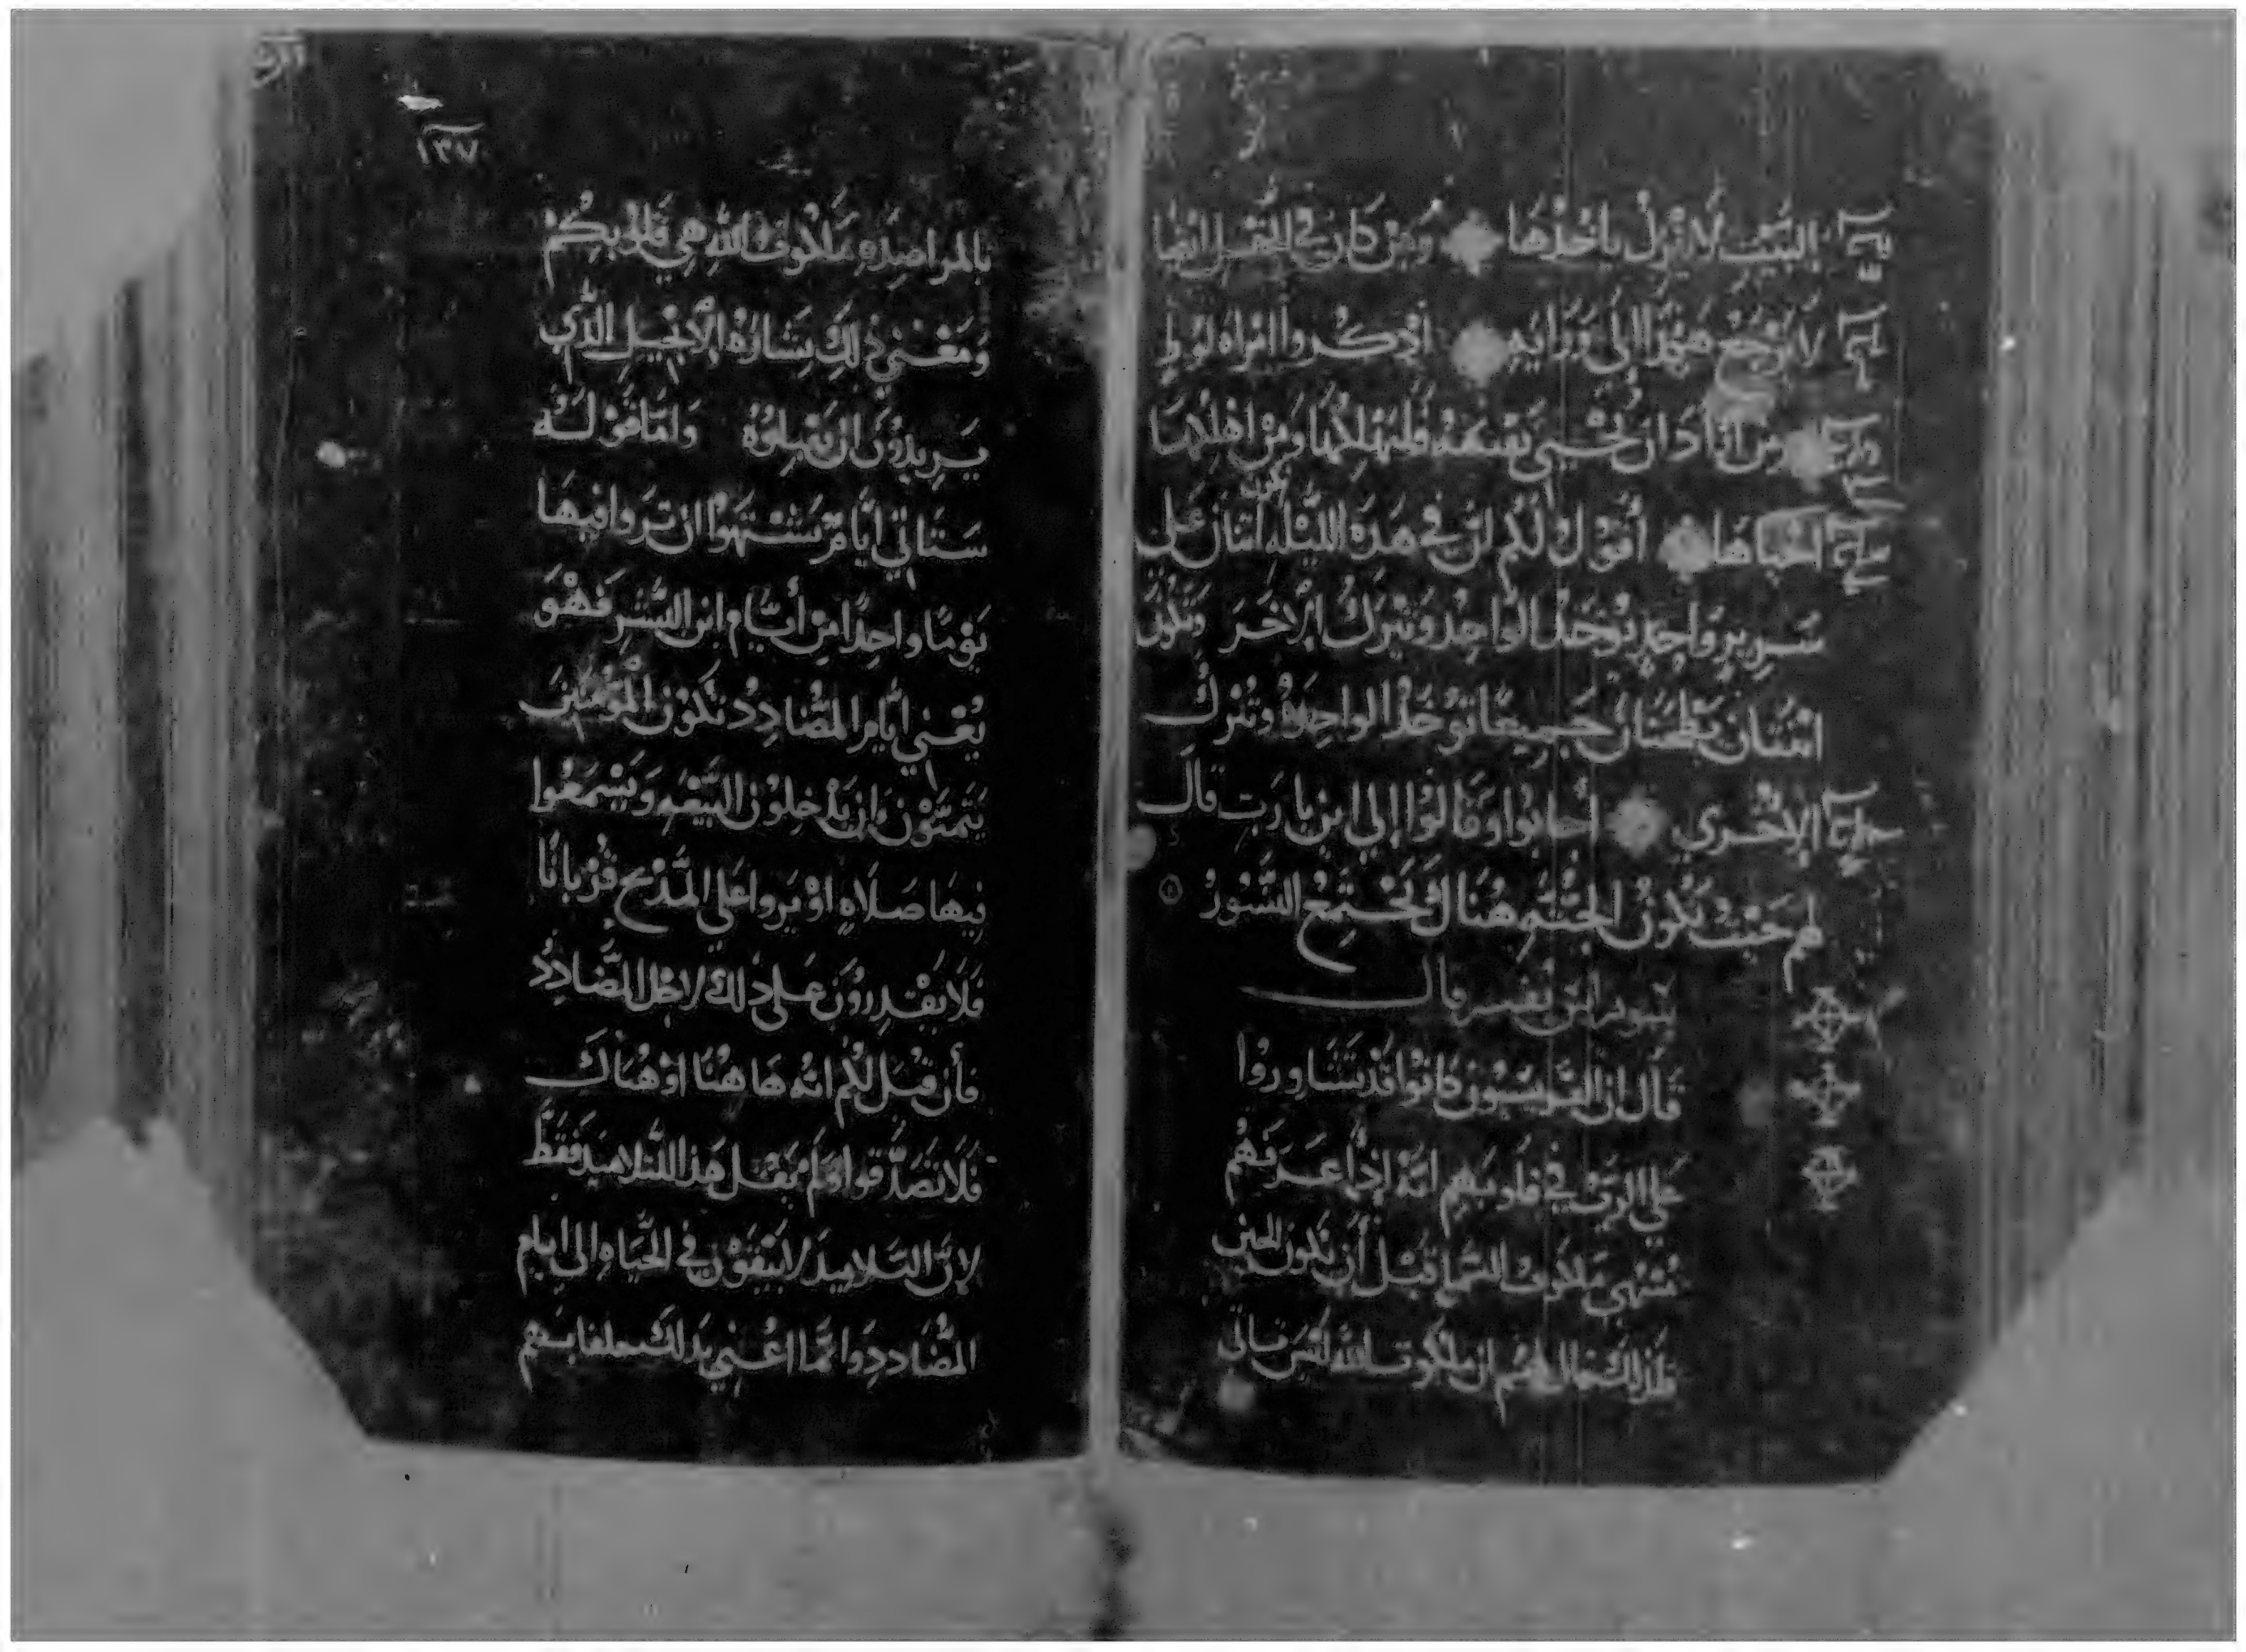 البيت لا ينزل ياخذها ومن كان في الحقل ايضا
لا يرجع هكذا الى ورايه اذكروا امراه لوط
ومن اراد ان يحيي نفسه فليهلكها ومن اهلكها
احياها اقول لكم ان في هذه الليله اتنان على
سرير واحد يوخذ الواحد ويترك الاخر وتكون
اتنتان يطحنان جميعا توخذ الواحده وتترك
الاخري اجابوا وقالوا إلي اين يا رب قال
لهم حيث تكون الجثه هناك تجتمع النسور
قال
قال ان الفريسيون كانوا قد تشاوروا
على الرب في قلوبهم انه إذا عرفهم
منتهي ملكوت السما قبل أن تكون الحين
فلذلك قال لهم ان ملكوت الله ليس تاتي
١٣٧
بالمراصده ملكوت الله هي في قلوبكم
ومعني ذلك بشارة الأنجيل الذي
يريدون ان يقبلوه واما قوله
ستاتي ايام تشتهوا ان تروا فيها
يوما واحدا من أيام ابن البشر فهو
يعني ايام المضادد تكون المومنين
يتمنون ان يدخلون البيعه ويسمعوا
فيها صلاه او يروا على المذبح قربانا
فلا يقدرون على ذلك لاجل المضادد
فأن قيل لكم انه ها هنا او هناك
فلا تصدقوا ولم يقل هذا للتلاميذ فقط
لان التلاميذ لا يبقون في الحياه الى ايام
المضادد وانما اعني بذلك